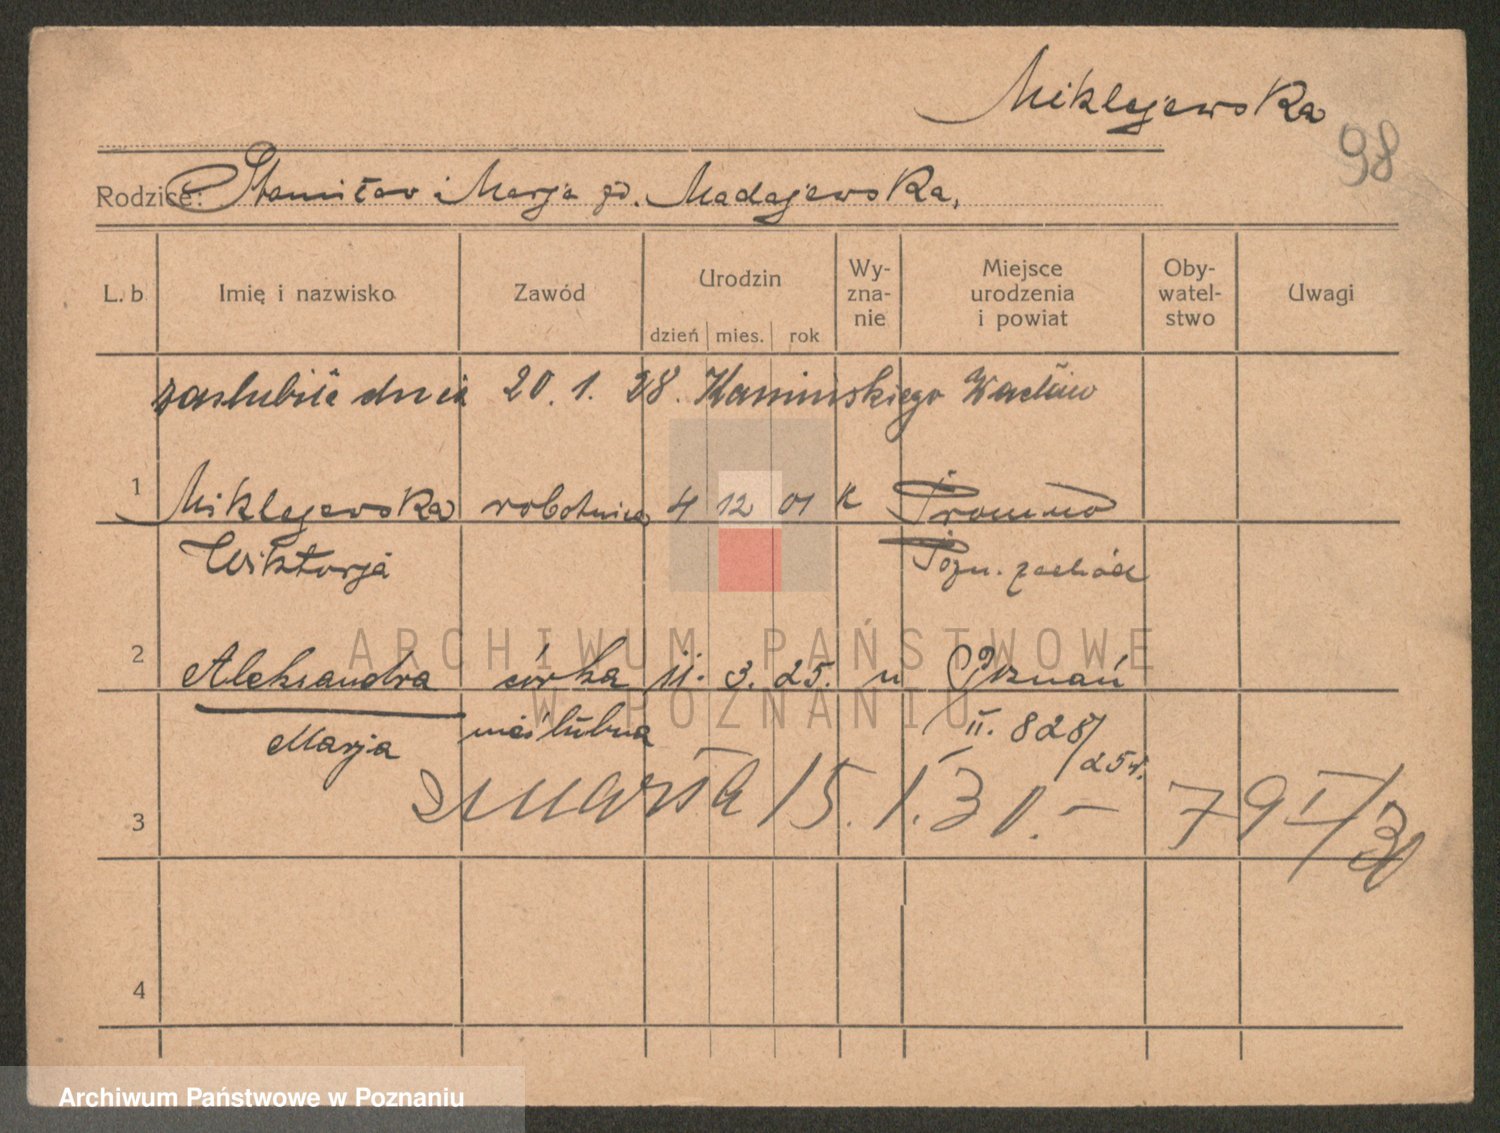 Miklejewska
98
Rodzice: Stanisław i Marja gd. Madajewska.
L. b Imię i nazwisko Zawód Urodzin Wy-zna-nie Miejsce urodzenia i powiat Oby-watel-stwo Uwagi
dzień mies. rok
zaslubiła dnia 20. 1. 28. Kaminskiego Wacław
1 Miklejewska robotnica 4 12 01 K
Wiktorja Pozn. zachód
2 Aleksandra córka 11. 3. 25. " Poznań
Marja nieślubna II. 828/25r.
3 zmarła 15. 1. 30. – 79 I/30
4
ARCHIWUM PAŃSTWOWE
W POZNANIU
Archiwum Państwowe w Poznaniu